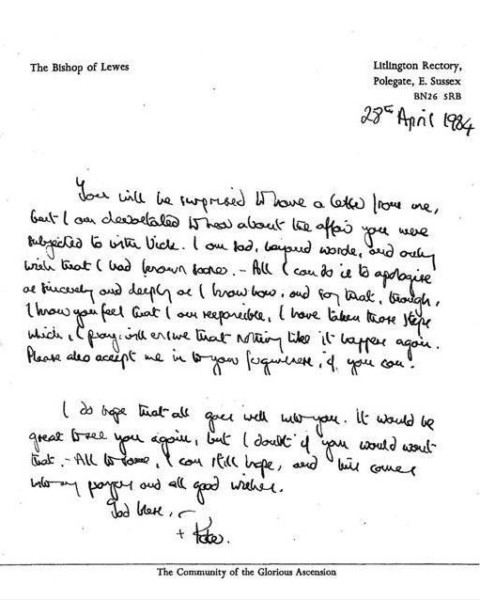 The Bishop of Lewes
Litlington Rectory,
Polegate, E. Sussex
BN26 5RB
28th April 1984
You will be surprised to have a letter from me,
but I am devastated to hear about the affair you were
subjected to with Vick. I am sad, beyond words, and only
wish that I had known sooner. - All I can do is to apologise
as sincerely and deeply as I know how, and say that, though,
I know you feel that I am responsible, I have taken those steps
which, I pray, will ensure that nothing like it happens again.
Please also accept me in to your forgiveness, if you can.
I do hope that all goes well with you. It would be
great to see you again, but I doubt if you would want
that. - All the same, I can still hope, and this comes
with my prayers and all good wishes.
God bless,
+ Peter.
The Community of the Glorious Ascension